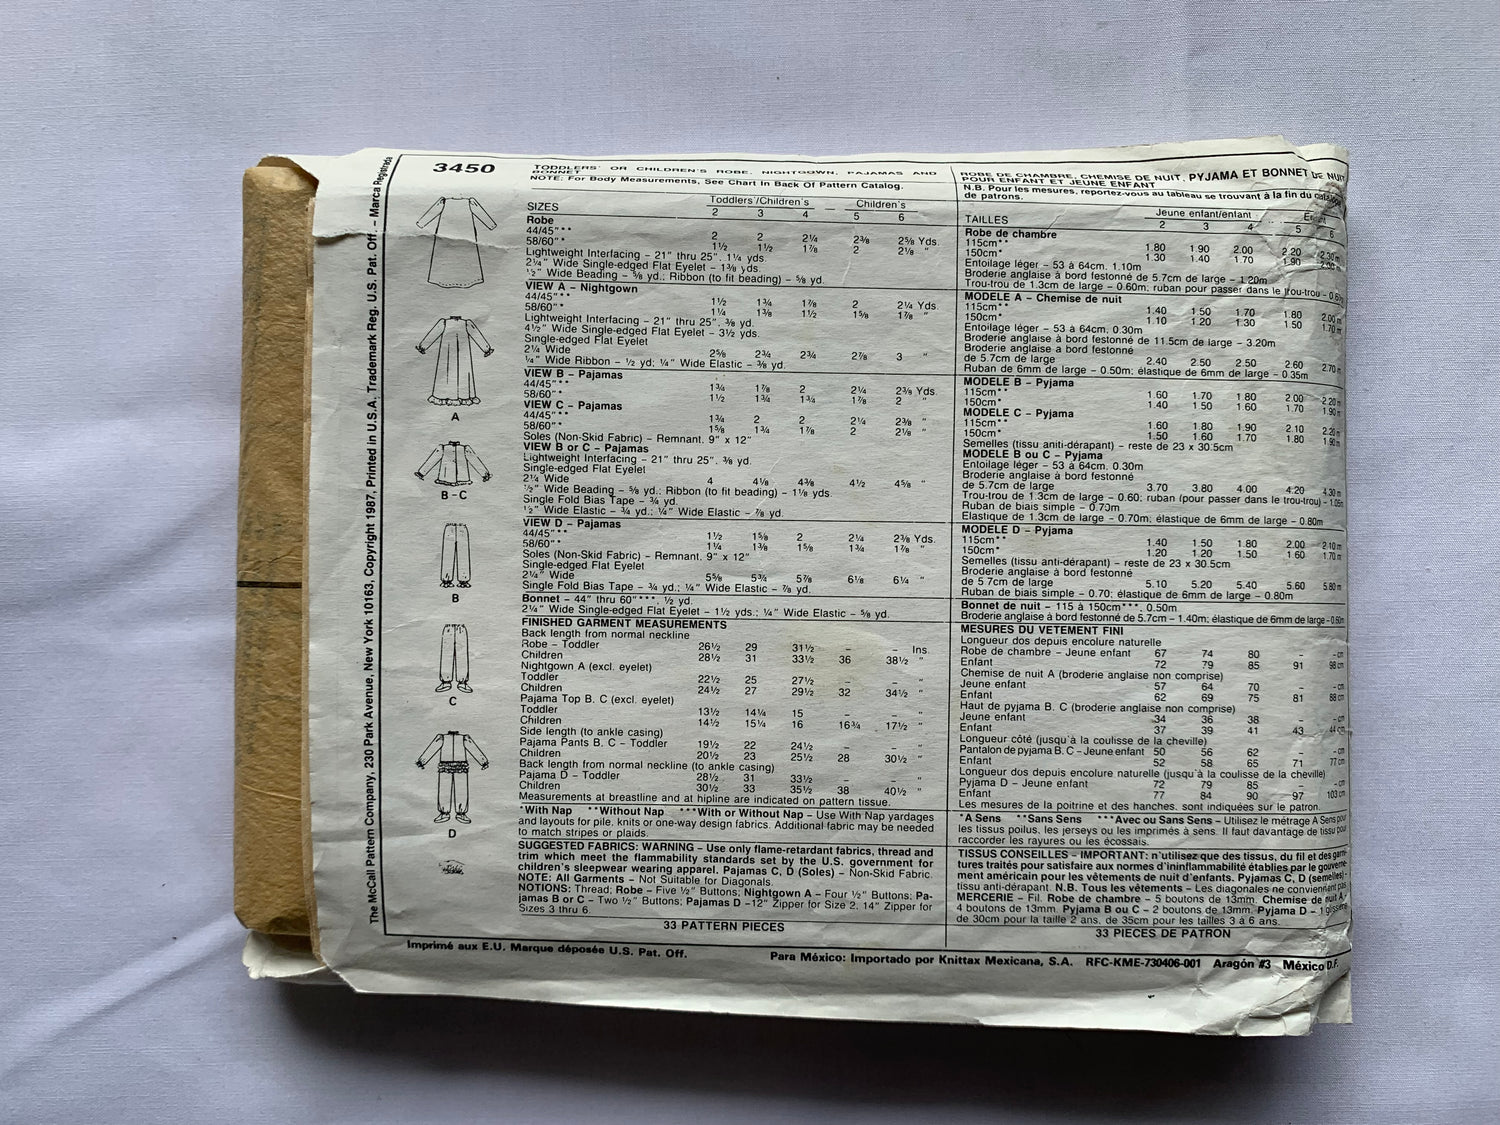 The McCall Pattern Company, 230 Park Avenue, New York 10163, Copyright 1987, Printed in U.S.A. Trademark Reg. U.S. Pat. Off. – Marca Registrada
3450
A
B-C
B
C
D
TODDLERS' OR CHILDREN'S ROBE, NIGHTGOWN, PAJAMAS AND
BONNET
NOTE: For Body Measurements, See Chart In Back Of Pattern Catalog.
Toddlers'/Children's Children's
SIZES 2 3 4 – 5 6
Robe
44/45"** 2 2 2¼ 2⅜ 2⅝ Yds.
58/60"* 1½ 1½ 1⅞ 2 2⅛ "
Lightweight Interfacing – 21" thru 25", 1¼ yds.
2¼" Wide Single-edged Flat Eyelet – 1⅜ yds.
½" Wide Beading – ⅝ yd.; Ribbon (to fit beading) – ⅝ yd.
VIEW A – Nightgown
44/45"** 1½ 1¾ 1⅞ 2 2¼ Yds.
58/60"* 1¼ 1⅜ 1½ 1⅝ 1⅞ "
Lightweight Interfacing – 21" thru 25", ⅜ yd.
4½" Wide Single-edged Flat Eyelet – 3½ yds.
Single-edged Flat Eyelet
2¼ Wide 2⅝ 2¾ 2¾ 2⅞ 3 "
¼" Wide Ribbon – ½ yd; ¼" Wide Elastic – ⅜ yd.
VIEW B – Pajamas
44/45"** 1¾ 1⅞ 2 2¼ 2⅜ Yds.
58/60"* 1½ 1¾ 1¾ 1⅞ 2 "
VIEW C – Pajamas
44/45"** 1¾ 2 2 2¼ 2⅜ "
58/60"* 1⅝ 1¾ 1⅞ 2 2⅛ "
Soles (Non-Skid Fabric) – Remnant, 9" x 12"
VIEW B or C – Pajamas
Lightweight Interfacing – 21" thru 25", ⅜ yd.
Single-edged Flat Eyelet
2¼ Wide 4 4⅛ 4⅜ 4½ 4⅝ "
½" Wide Beading – ⅝ yd.; Ribbon (to fit beading) – 1⅛ yds.
Single Fold Bias Tape – ¾ yd.
½" Wide Elastic – ¾ yd.; ¼" Wide Elastic – ⅞ yd.
VIEW D – Pajamas
44/45"** 1½ 1⅝ 2 2¼ 2⅜ Yds.
58/60"* 1¼ 1⅜ 1⅝ 1¾ 1⅞ "
Soles (Non-Skid Fabric) – Remnant, 9" x 12"
Single-edged Flat Eyelet
2¼" Wide 5⅝ 5¾ 5⅞ 6⅛ 6¼ "
Single Fold Bias Tape – ¾ yd.; ¼" Wide Elastic – ⅞ yd.
Bonnet – 44" thru 60"***, ½ yd.
2¼" Wide Single-edged Flat Eyelet – 1½ yds.; ¼" Wide Elastic – ⅝ yd.
FINISHED GARMENT MEASUREMENTS
Back length from normal neckline
Robe – Toddler 26½ 29 31½ – – Ins.
Children 28½ 31 33½ 36 38½ "
Nightgown A (excl. eyelet)
Toddler 22½ 25 27½ – – "
Children 24½ 27 29½ 32 34½ "
Pajama Top B, C (excl. eyelet)
Toddler 13½ 14¼ 15 – – "
Children 14½ 15¼ 16 16¾ 17½ "
Side length (to ankle casing)
Pajama Pants B, C – Toddler 19½ 22 24½ – – "
Children 20½ 23 25½ 28 30½ "
Back length from normal neckline (to ankle casing)
Pajama D – Toddler 28½ 31 33½ – – "
Children 30½ 33 35½ 38 40½ "
Measurements at breastline and at hipline are indicated on pattern tissue.
*With Nap **Without Nap ***With or Without Nap – Use With Nap yardages
and layouts for pile, knits or one-way design fabrics. Additional fabric may be needed
to match stripes or plaids.
SUGGESTED FABRICS: WARNING – Use only flame-retardant fabrics, thread and
trim which meet the flammability standards set by the U.S. government for
children's sleepwear wearing apparel. Pajamas C, D (Soles) – Non-Skid Fabric.
NOTE: All Garments – Not Suitable for Diagonals.
NOTIONS: Thread; Robe – Five ½" Buttons; Nightgown A – Four ½" Buttons; Pa-
jamas B or C – Two ½" Buttons; Pajamas D –12" Zipper for Size 2, 14" Zipper for
Sizes 3 thru 6.
33 PATTERN PIECES
ROBE DE CHAMBRE, CHEMISE DE NUIT, PYJAMA ET BONNET DE NUIT
POUR ENFANT ET JEUNE ENFANT
N.B. Pour les mesures, reportez-vous au tableau se trouvant à la fin du catalogue
de patrons.
Jeune enfant/enfant Enfant
TAILLES 2 3 4 – 5 6
Robe de chambre
115cm** 1.80 1.90 2.00 2.20 2.30 m
150cm* 1.30 1.40 1.70 1.90 2.00 m
Entoilage léger – 53 à 64cm, 1.10m
Broderie anglaise à bord festonné de 5.7cm de large – 1.20m
Trou-trou de 1.3cm de large – 0.60m; ruban pour passer dans le trou-trou – 0.60m
MODELE A – Chemise de nuit
115cm** 1.40 1.50 1.70 1.80 2.00 m
150cm* 1.10 1.20 1.30 1.50 1.70 m
Entoilage léger – 53 à 64cm, 0.30m
Broderie anglaise à bord festonné de 11.5cm de large – 3.20m
Broderie anglaise à bord festonné
de 5.7cm de large 2.40 2.50 2.50 2.60 2.70 m
Ruban de 6mm de large – 0.50m; élastique de 6mm de large – 0.35m
MODELE B – Pyjama
115cm** 1.60 1.70 1.80 2.00 2.20 m
150cm* 1.40 1.50 1.60 1.70 1.90 m
MODELE C – Pyjama
115cm** 1.60 1.80 1.90 2.10 2.20 m
150cm* 1.50 1.60 1.70 1.80 1.90 m
Semelles (tissu aniti-dérapant) – reste de 23 x 30.5cm
MODELE B OU C – Pyjama
Entoilage léger – 53 à 64cm, 0.30m
Broderie anglaise à bord festonné
de 5.7cm de large 3.70 3.80 4.00 4.20 4.30 m
Trou-trou de 1.3cm de large – 0.60; ruban (pour passer dans le trou-trou) – 1.05m
Ruban de biais simple – 0.70m
Elastique de 1.3cm de large – 0.70m; élastique de 6mm de large – 0.80m
MODELE D – Pyjama
115cm** 1.40 1.50 1.80 2.00 2.10 m
150cm* 1.20 1.20 1.50 1.60 1.70 m
Semelles (tissu anti-dérapant) – reste de 23 x 30.5cm
Broderie anglaise à bord festonné
de 5.7cm de large 5.10 5.20 5.40 5.60 5.80 m
Ruban de biais simple – 0.70; élastique de 6mm de large – 0.80m
Bonnet de nuit – 115 à 150cm***, 0.50m
Broderie anglaise à bord festonné de 5.7cm – 1.40m; élastique de 6mm de large – 0.60m
MESURES DU VETEMENT FINI
Longueur dos depuis encolure naturelle
Robe de chambre – Jeune enfant 67 74 80 – – cm
Enfant 72 79 85 91 98 cm
Chemise de nuit A (broderie anglaise non comprise)
Jeune enfant 57 64 70 – – cm
Enfant 62 69 75 81 88 cm
Haut de pyjama B, C (broderie anglaise non comprise)
Jeune enfant 34 36 38 – – cm
Enfant 37 39 41 43 44 cm
Longueur côté (jusqu'à la coulisse de la cheville)
Pantalon de pyjama B, C – Jeune enfant 50 56 62 – – cm
Enfant 52 58 65 71 77 cm
Longueur dos depuis encolure naturelle (jusqu'à la coulisse de la cheville)
Pyjama D – Jeune enfant 72 79 85 – – cm
Enfant 77 84 90 97 103 cm
Les mesures de la poitrine et des hanches, sont indiquées sur le patron.
*A Sens **Sans Sens ***Avec ou Sans Sens – Utilisez le métrage A Sens pour
les tissus poilus, les jerseys ou les imprimés à sens. Il faut davantage de tissu pour
raccorder les rayures ou les écossais.
TISSUS CONSEILLES – IMPORTANT: n'utilisez que des tissus, du fil et des garni-
tures traités pour satisfaire aux normes d'ininflammabilité établies par le gouverne-
ment américain pour les vêtements de nuit d'enfants. Pyjamas C, D (semelles) –
tissu anti-dérapant. N.B. Tous les vêtements – Les diagonales ne conviennent pas
MERCERIE – Fil. Robe de chambre – 5 boutons de 13mm. Chemise de nuit A –
4 boutons de 13mm. Pyjama B ou C – 2 boutons de 13mm. Pyjama D – 1 glissière
de 30cm pour la taille 2 ans, de 35cm pour les tailles 3 à 6 ans.
33 PIECES DE PATRON
Imprimé aux E.U. Marque déposée U.S. Pat. Off.
Para México: Importado por Knittax Mexicana, S.A. RFC-KME-730406-001 Aragón #3 México D.F.